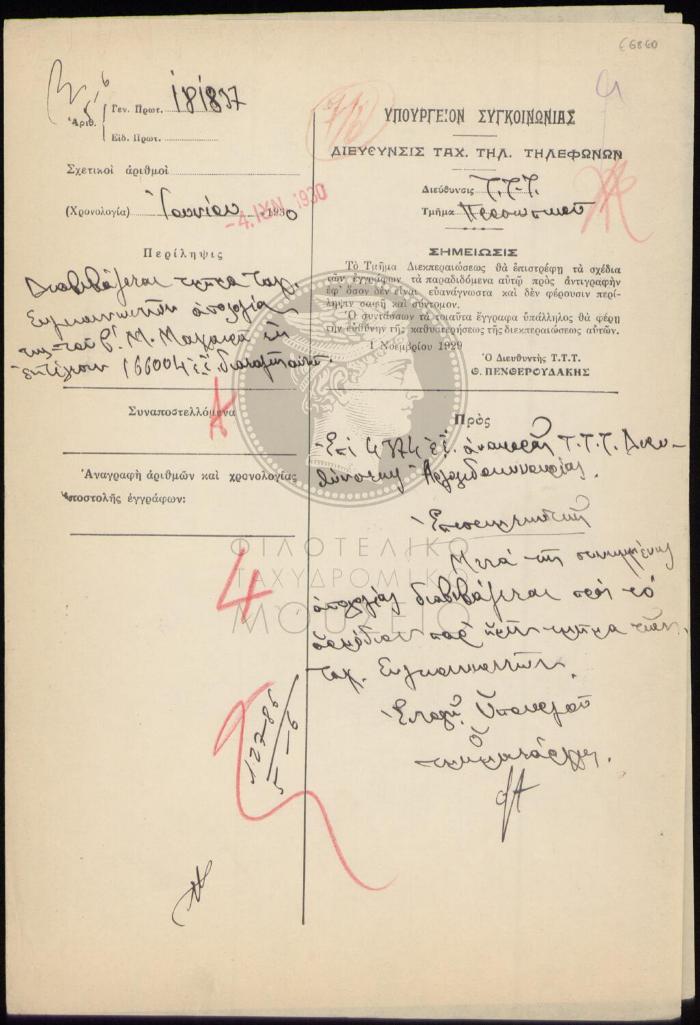 66860
Ἀριθ.
Γεν. Πρωτ. 181837
Εἰδ. Πρωτ.
Σχετικοὶ ἀριθμοὶ
(Χρονολογία) Ἰουνίου 1930
-4. ΙΥΝ. 1930
Περίληψις
Διαβιβάζεται τμῆμα Ταχ.
Συγκοινωνιῶν ἀπολογία
166004 ἐ.ἔ. διαταγὴν
Συναποστελλόμενα
Ἀναγραφὴ ἀριθμῶν καὶ χρονολογίας
ἀποστολῆς ἐγγράφων:
4
127-86
5-6
ΥΠΟΥΡΓΕΙΟΝ ΣΥΓΚΟΙΝΩΝΙΑΣ
ΔΙΕΥΘΥΝΣΙΣ ΤΑΧ. ΤΗΛ. ΤΗΛΕΦΩΝΩΝ
Διεύθυνσις Τ.Τ.Τ.
Τμῆμα Προσωπικοῦ
ΣΗΜΕΙΩΣΙΣ
Τὸ Τμῆμα Διεκπεραιώσεως θὰ ἐπιστρέφῃ τὰ σχέδια
τῶν ἐγγράφων τὰ παραδιδόμενα αὐτῷ πρὸς ἀντιγραφὴν
ἐφ' ὅσον δὲν εἶναι εὐανάγνωστα καὶ δὲν φέρουσιν περί-
ληψιν σαφῆ καὶ σύντομον.
Ὁ συντάσσων τὰ τοιαῦτα ἔγγραφα ὑπάλληλος θὰ φέρῃ
τὴν εὐθύνην τῆς καθυστερήσεως τῆς διεκπεραιώσεως αὐτῶν.
1 Νοεμβρίου 1929
Ὁ Διευθυντὴς Τ.Τ.Τ.
Θ. ΠΕΝΘΕΡΟΥΔΑΚΗΣ
Πρὸς
Ἐπὶ 4374 ἐ.ἔ. ἀναφορᾶς Τ.Τ.Τ. Διευ-
θύνσεως Ἀργολιδοκορινθίας.
Μετὰ τῆς συνημμένης
ἀπολογίας διαβιβάζεται πρὸς τὸ
ἁρμόδιον παρ' ἡμῖν τμῆμα τῶν
Ταχ. Συγκοινωνιῶν.
Ἐντολῇ Ὑπουργοῦ
Ὁ
τμηματάρχης.
ΦΙΛΟΤΕΛΙΚΟ
ΤΑΧΥΔΡΟΜΙΚΟ
ΜΟΥΣΕΙΟ